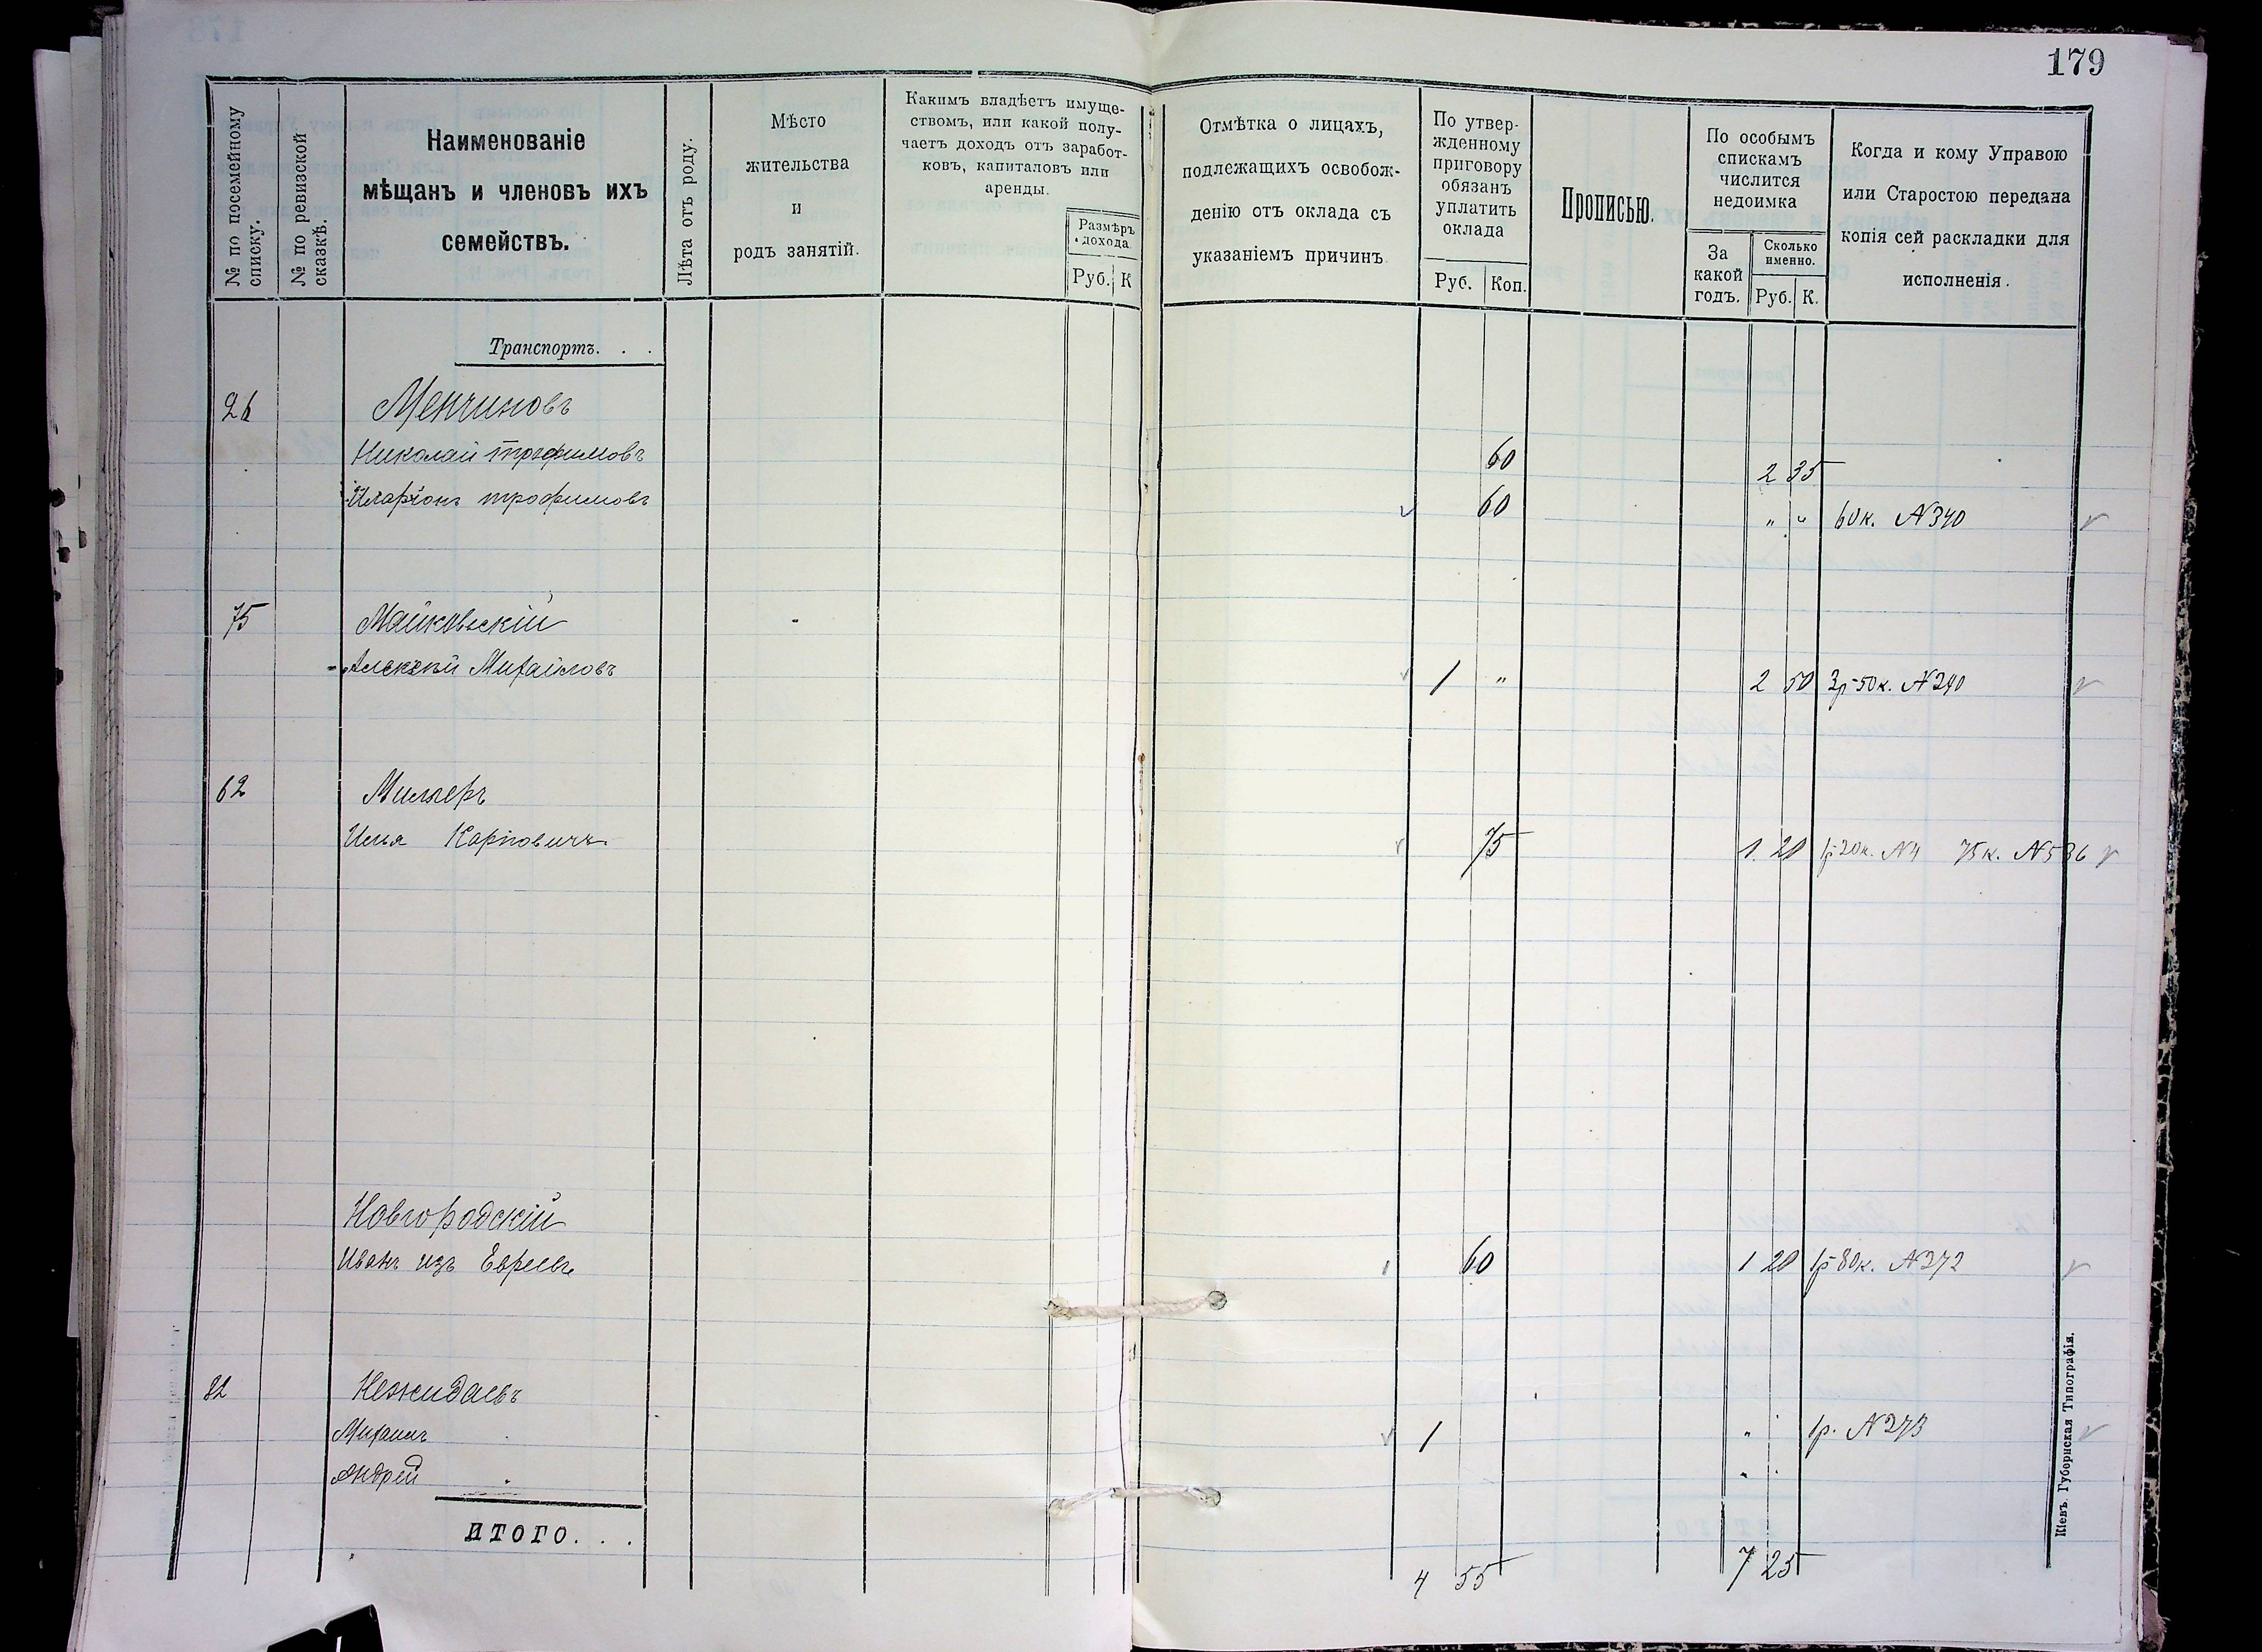 179
№ по посемейному списку.
№ по ревизской сказкѣ.
Наименованіе
мѣщанъ и членовъ ихъ
семействъ.
Лѣта отъ роду.
Мѣсто
жительства
и
родъ занятій.
Какимъ владѣетъ имуще-
ствомъ, или какой полу-
чаетъ доходъ отъ заработ-
ковъ, капиталовъ или
аренды.
Размѣръ
дохода.
Руб. К
Отмѣтка о лицахъ,
подлежащихъ освобож-
денію отъ оклада съ
указаніемъ причинъ
По утвер-
жденному
приговору
обязанъ
уплатить
оклада
Руб. Коп.
Прописью.
По особымъ
спискамъ
числится
недоимка
За
какой
годъ.
Сколько
именно.
Руб. К.
Когда и кому Управою
или Старостою передана
копія сей раскладки для
исполненія.
Транспортъ. . .
26 Менчиновъ
Николай Трофимовъ 60 2 35
Иларіонъ трофимовъ 60 " " 60к. N340
75 Майковскій
Алексѣй Михайловъ 1 " 2 50 3р 50к. N240
62 Миллеръ
Илья Карповичъ 75 1 20 1р 20к. N4 75к. N536
Новгородскій
Иванъ изъ Евреевъ 60 1 20 1р 80к. N272
82 Нежидаевъ
Михаилъ 1 " 1р. N273
Андрей "
ИТОГО. . .
4 55 7 25
Кіевъ. Губернская Типографія.